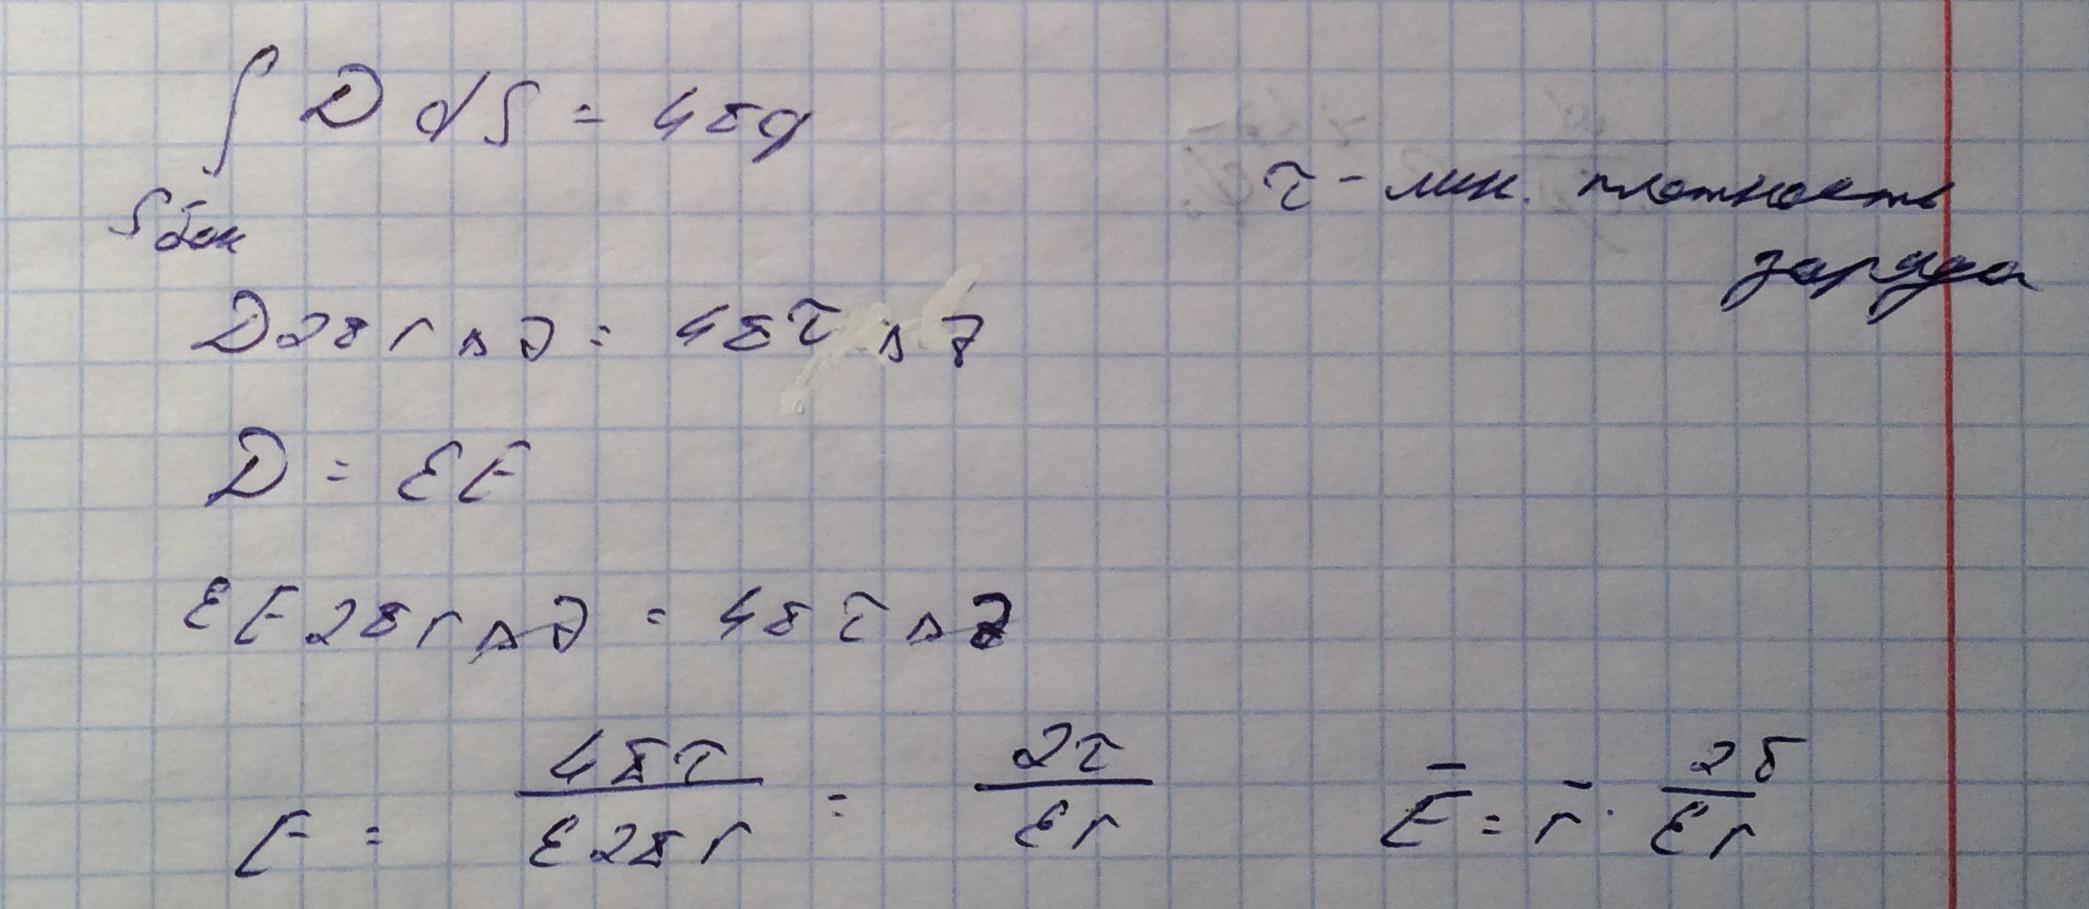 ∫ D dS = 4πq
Sбок
τ - лин. плотность
заряда
D2πr Δz = 4πτ Δz
D = εE
εE2πrΔz = 4πτΔz
E = 4πτ / ε2πr = 2τ / εr
E̅ = r̅ · 2б / εr